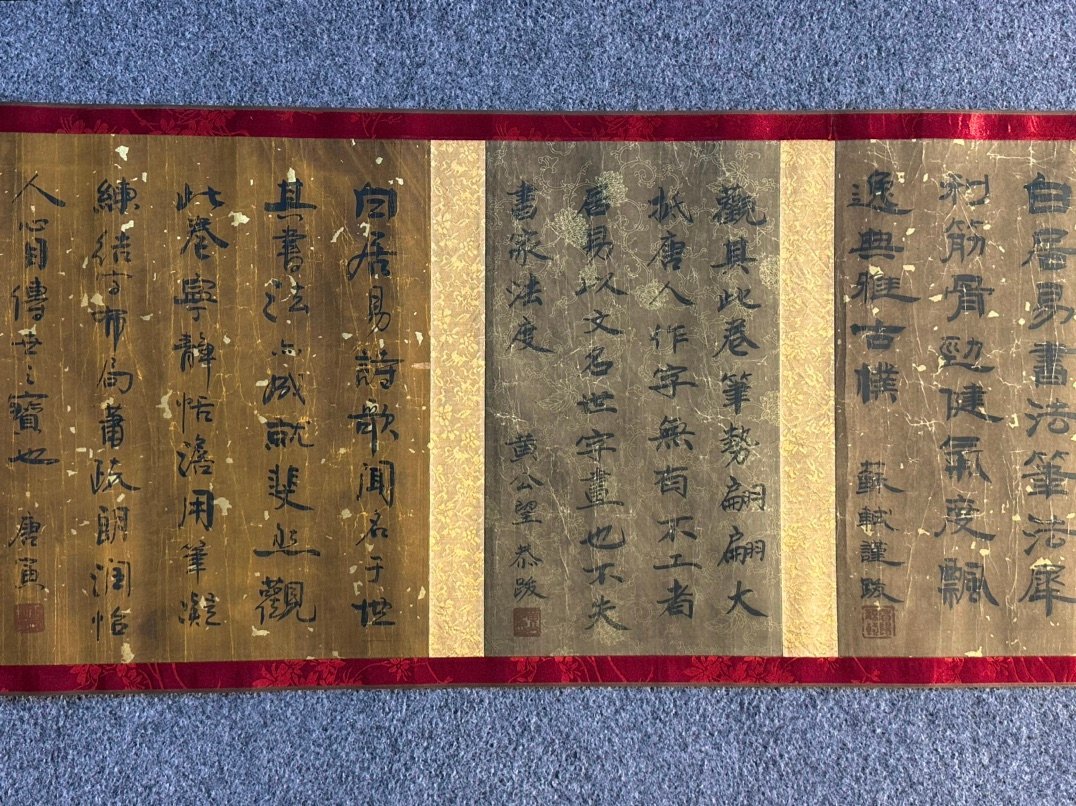 白居易書法筆法犀
利筋骨勁健氣度飄
逸典雅古樸 蘇軾謹跋
觀其此卷筆勢翩翩大
抵唐人作字無有不工者
居易以文名世字畫也不失
書家法度 黄公望 恭跋
白居易詩歌聞名于世
其書法亦成就斐然觀
此卷寧靜恬澹用筆凝
練結字布局蕭疏朗潤怡
人心目傳世之寶也 唐寅